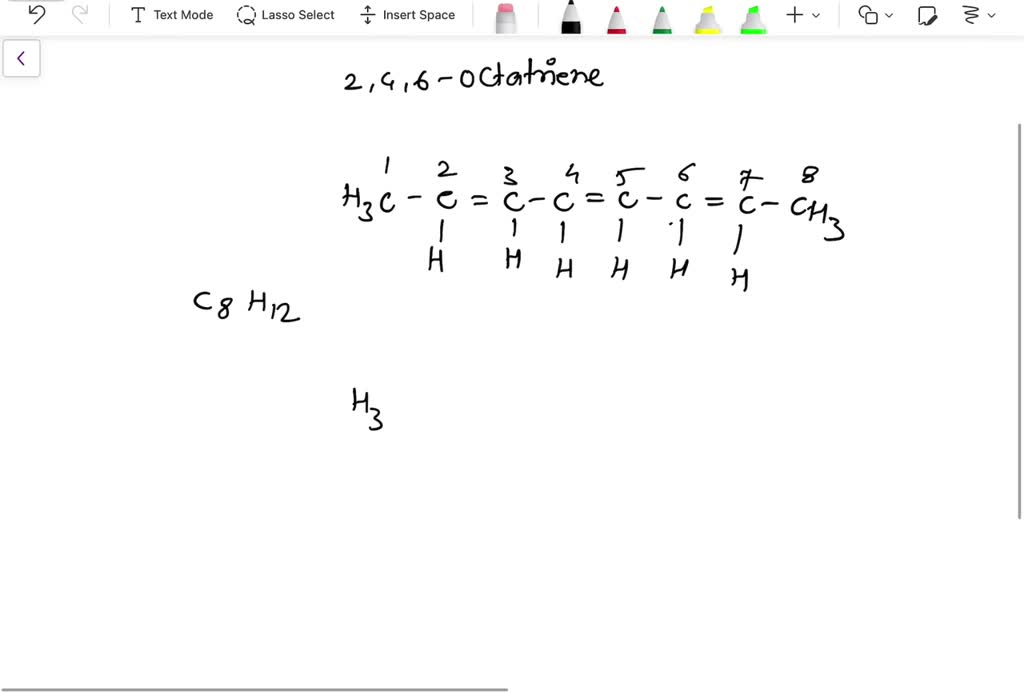 Text Mode Lasso Select Insert Space
2,4,6-octatriene
1 2 3 4 5 6 7 8
H3C - C = C - C = C - C = C - CH3
H H H H H H
C8H12
H3